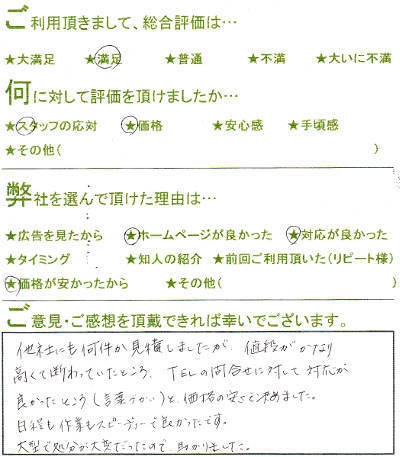 ご利用頂きまして、総合評価は…
★大満足 ★満足 ★普通 ★不満 ★大いに不満
何に対して評価を頂けましたか…
★スタッフの応対 ★価格 ★安心感 ★手頃感
★その他( )
弊社を選んで頂けた理由は…
★広告を見たから ★ホームページが良かった ★対応が良かった
★タイミング ★知人の紹介 ★前回ご利用頂いた(リピート様)
★価格が安かったから ★その他( )
ご意見・ご感想を頂戴できれば幸いでございます。
他社にも何件か見積しましたが、値段がかなり
高くて断わっていたところ、TELの問合せに対して対応が
良かったところ(言葉づかい)と、価格の安さで決めました。
日程も作業もスピーディーで良かったです。
大型で処分が大変だったので、助かりました。